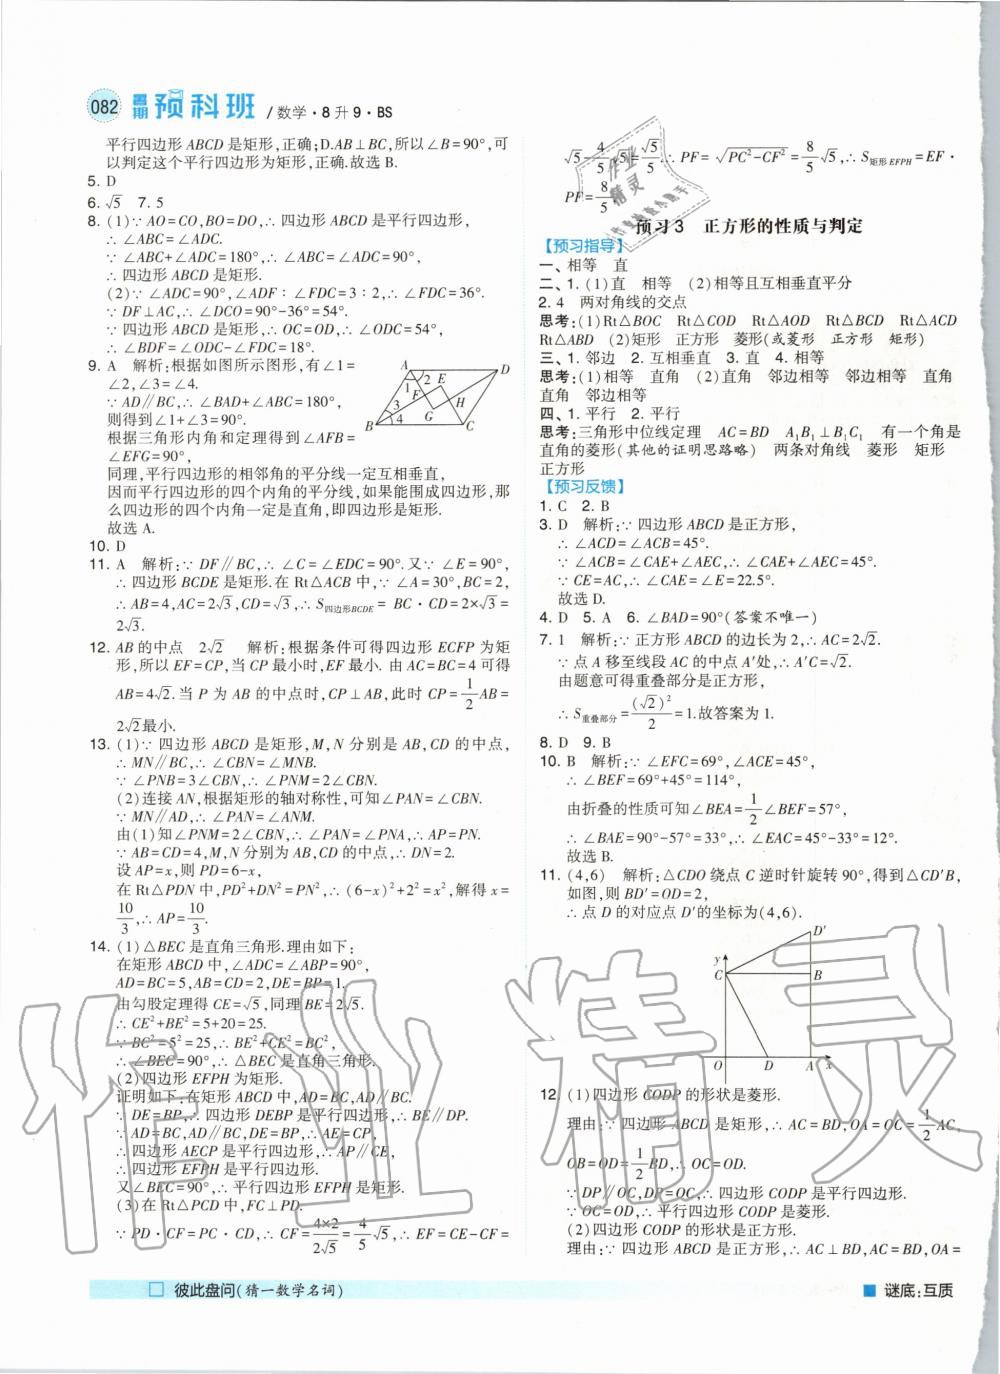 082 暑期预科班 / 数学·8升9·BS
平行四边形 ABCD 是矩形,正确;D.AB⊥BC,所以∠B=90°,可
以判定这个平行四边形为矩形,正确.故选 B.
5. D
6. √5　7. 5
8. (1)∵ AO=CO,BO=DO,∴ 四边形 ABCD 是平行四边形,
∴ ∠ABC=∠ADC.
∵ ∠ABC+∠ADC=180°,∴ ∠ABC=∠ADC=90°,
∴ 四边形 ABCD 是矩形.
(2)∵ ∠ADC=90°,∠ADF∶∠FDC=3∶2,∴ ∠FDC=36°.
∵ DF⊥AC,∴ ∠DCO=90°-36°=54°.
∵ 四边形 ABCD 是矩形,∴ OC=OD,∴ ∠ODC=54°,
∴ ∠BDF=∠ODC-∠FDC=18°.
9. A　解析:根据如图所示图形,有∠1=
∠2,∠3=∠4.
∵ AD∥BC,∴ ∠BAD+∠ABC=180°,
则得到∠1+∠3=90°.
根据三角形内角和定理得到∠AFB=
∠EFG=90°.
A D 1 2 E F H 3 4 G B C
同理,平行四边形的相邻角的平分线一定互相垂直,
因而平行四边形的四个内角的平分线,如果能围成四边形,那
么四边形的四个内角一定是直角,即四边形是矩形.
故选 A.
10. D
11. A　解析:∵ DF∥BC,∴ ∠C=∠EDC=90°.又∵ ∠E=90°,
∴ 四边形 BCDE 是矩形.在 Rt△ACB 中,∵ ∠A=30°,BC=2,
∴ AB=4,AC=2√3,CD=√3,∴ S四边形BCDE = BC·CD=2×√3=
2√3.
12. AB 的中点　2√2　解析:根据条件可得四边形 ECFP 为矩
形,所以 EF=CP,当 CP 最小时,EF 最小.由 AC=BC=4 可得
AB=4√2.当 P 为 AB 的中点时,CP⊥AB,此时 CP=1/2AB=
2√2最小.
13. (1)∵ 四边形 ABCD 是矩形,M,N 分别是 AB,CD 的中点,
∴ MN∥BC,∴ ∠CBN=∠MNB.
∵ ∠PNB=3∠CBN,∴ ∠PNM=2∠CBN.
(2)连接 AN,根据矩形的轴对称性,可知∠PAN=∠CBN.
∵ MN∥AD,∴ ∠PAN=∠ANM.
由(1)知∠PNM=2∠CBN,∴ ∠PAN=∠PNA,∴ AP=PN.
∵ AB=CD=4,M,N 分别为 AB,CD 的中点,∴ DN=2.
设 AP=x,则 PD=6-x,
在 Rt△PDN 中,PD²+DN²=PN²,∴ (6-x)²+2²=x²,解得 x=
10/3,∴ AP=10/3.
14. (1)△BEC 是直角三角形.理由如下:
在矩形 ABCD 中,∠ADC=∠ABP=90°,
AD=BC=5,AB=CD=2,DE=BP=1.
由勾股定理得 CE=√5,同理 BE=2√5.
∴ CE²+BE²=5+20=25.
∵ BC²=5²=25,∴ BE²+CE²=BC²,
∴ ∠BEC=90°,∴ △BEC 是直角三角形.
(2)四边形 EFPH 为矩形.
证明如下:在矩形 ABCD 中,AD=BC,AD∥BC.
∵ DE=BP,∴ 四边形 DEBP 是平行四边形,∴ BE∥DP.
∵ AD=BC,AD∥BC,DE=BP,∴ AE=CP,
∴ 四边形 AECP 是平行四边形,∴ AP∥CE,
∴ 四边形 EFPH 是平行四边形.
又∠BEC=90°,∴ 平行四边形 EFPH 是矩形.
(3)在 Rt△PCD 中,FC⊥PD.
∵ PD·CF=PC·CD,∴ CF=4×2/2√5=4/5√5,∴ EF=CE-CF=
√5-4/5√5=√5/5.∴ PF=√(PC²-CF²)=8/5√5,∴ S矩形EFPH=EF·
PF=8/5.
预习3　正方形的性质与判定
【预习指导】
一、相等　直
二、1. (1)直　相等　(2)相等且互相垂直平分
2. 4　两对角线的交点
思考:(1)Rt△BOC　Rt△COD　Rt△AOD　Rt△BCD　Rt△ACD
Rt△ABD　(2)矩形　正方形　菱形(或菱形　正方形　矩形)
三、1. 邻边　2. 互相垂直　3. 直　4. 相等
思考:(1)相等　直角　(2)直角　邻边相等　邻边相等　直角
直角　邻边相等
四、1. 平行　2. 平行
思考:三角形中位线定理　AC=BD　A₁B₁⊥B₁C₁　有一个角是
直角的菱形(其他的证明思路略)　两条对角线　菱形　矩形
正方形
【预习反馈】
1. C　2. B
3. D　解析:∵ 四边形 ABCD 是正方形,
∴ ∠ACD=∠ACB=45°.
∵ ∠ACB=∠CAE+∠AEC,∴ ∠CAE+∠AEC=45°.
∵ CE=AC,∴ ∠CAE=∠E=22.5°.
故选 D.
4. D　5. A　6. ∠BAD=90°(答案不唯一)
7. 1　解析:∵ 正方形 ABCD 的边长为 2,∴ AC=2√2.
∵ 点 A 移至线段 AC 的中点 A′处,∴ A′C=√2.
由题意可得重叠部分是正方形,
∴ S重叠部分=(√2)²/2=1.故答案为 1.
8. D　9. B
10. B　解析:∵ ∠EFC=69°,∠ACE=45°,
∴ ∠BEF=69°+45°=114°,
由折叠的性质可知∠BEA=1/2∠BEF=57°,
∴ ∠BAE=90°-57°=33°,∴ ∠EAC=45°-33°=12°.
故选 B.
11. (4,6)　解析:△CDO 绕点 C 逆时针旋转 90°,得到△CD′B,
如图,则 BD′=OD=2,
∴ 点 D 的对应点 D′的坐标为(4,6).
D′ y C B O D A x
12. (1)四边形 CODP 的形状是菱形.
理由:∵ 四边形 ABCD 是矩形,∴ AC=BD,OA=OC=1/2AC,
OB=OD=1/2BD,∴ OC=OD.
∵ DP∥OC,DP=OC,∴ 四边形 CODP 是平行四边形.
∵ OC=OD,∴ 平行四边形 CODP 是菱形.
(2)四边形 CODP 的形状是正方形.
理由:∵ 四边形 ABCD 是正方形,∴ AC⊥BD,AC=BD,OA=
彼此盘问(猜一数学名词)
谜底:互质
作业精灵